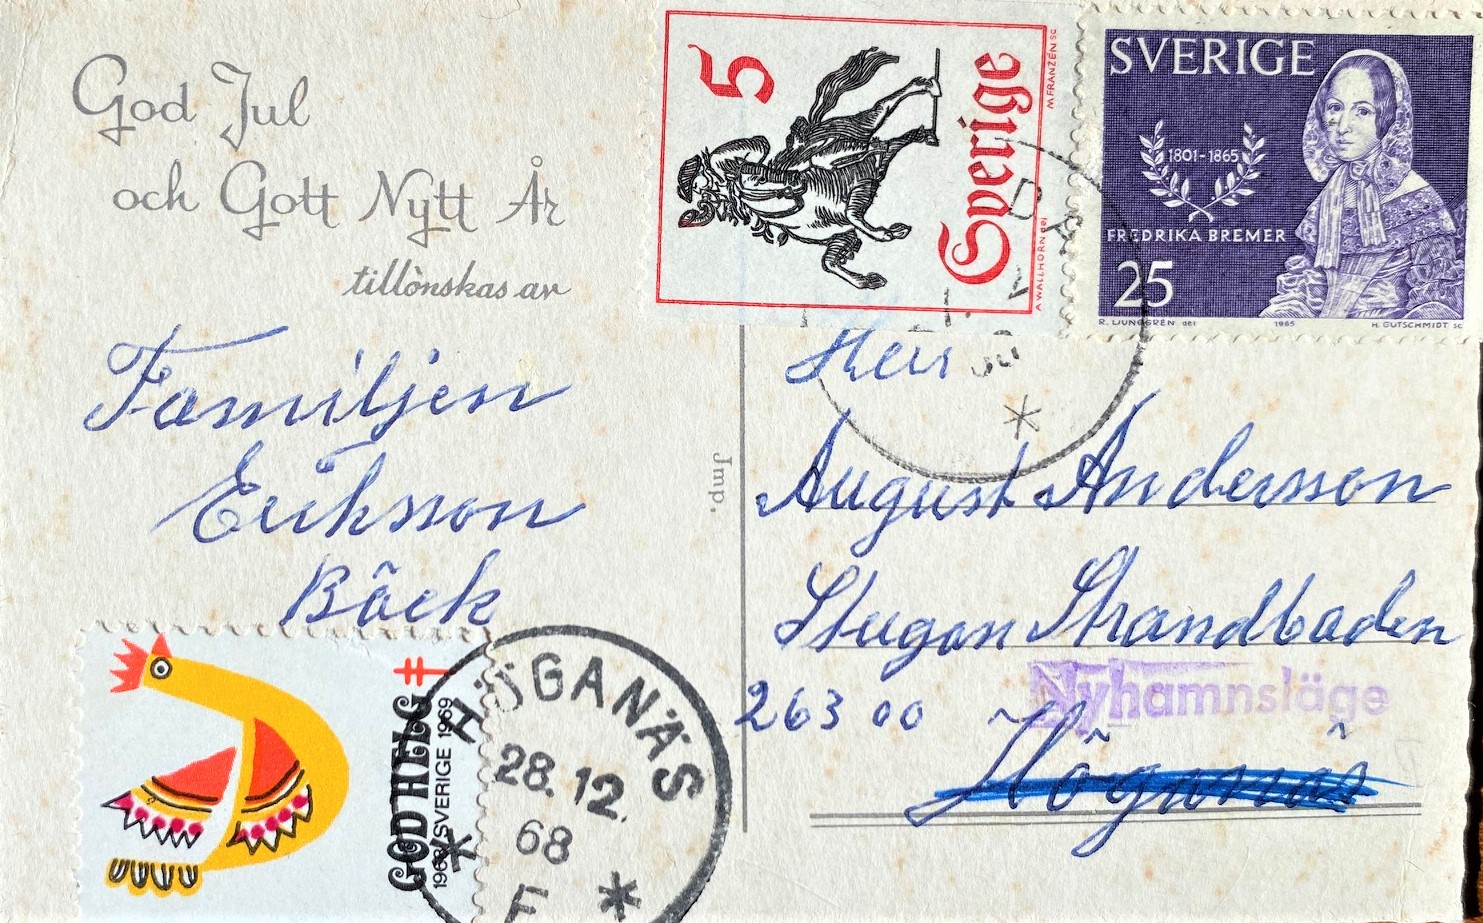 God Jul
och Gott Nytt År
tillönskas av
Familjen
Eriksson
Bäck
GOD HELG
1968 SVERIGE 1969
HÖGANÄS
28.12.
68
F
*
Jmp.
5
Sverige
M FRANZÉN SC
A WALLHORN del
SVERIGE
1801-1865
FREDRIKA BREMER
25
R. LJUNGGREN del 1965 H. GUTSCHMIDT SC
Herr
August Andersson
Stugan Strandbaden
263 00
Nyhamnsläge
Höganäs